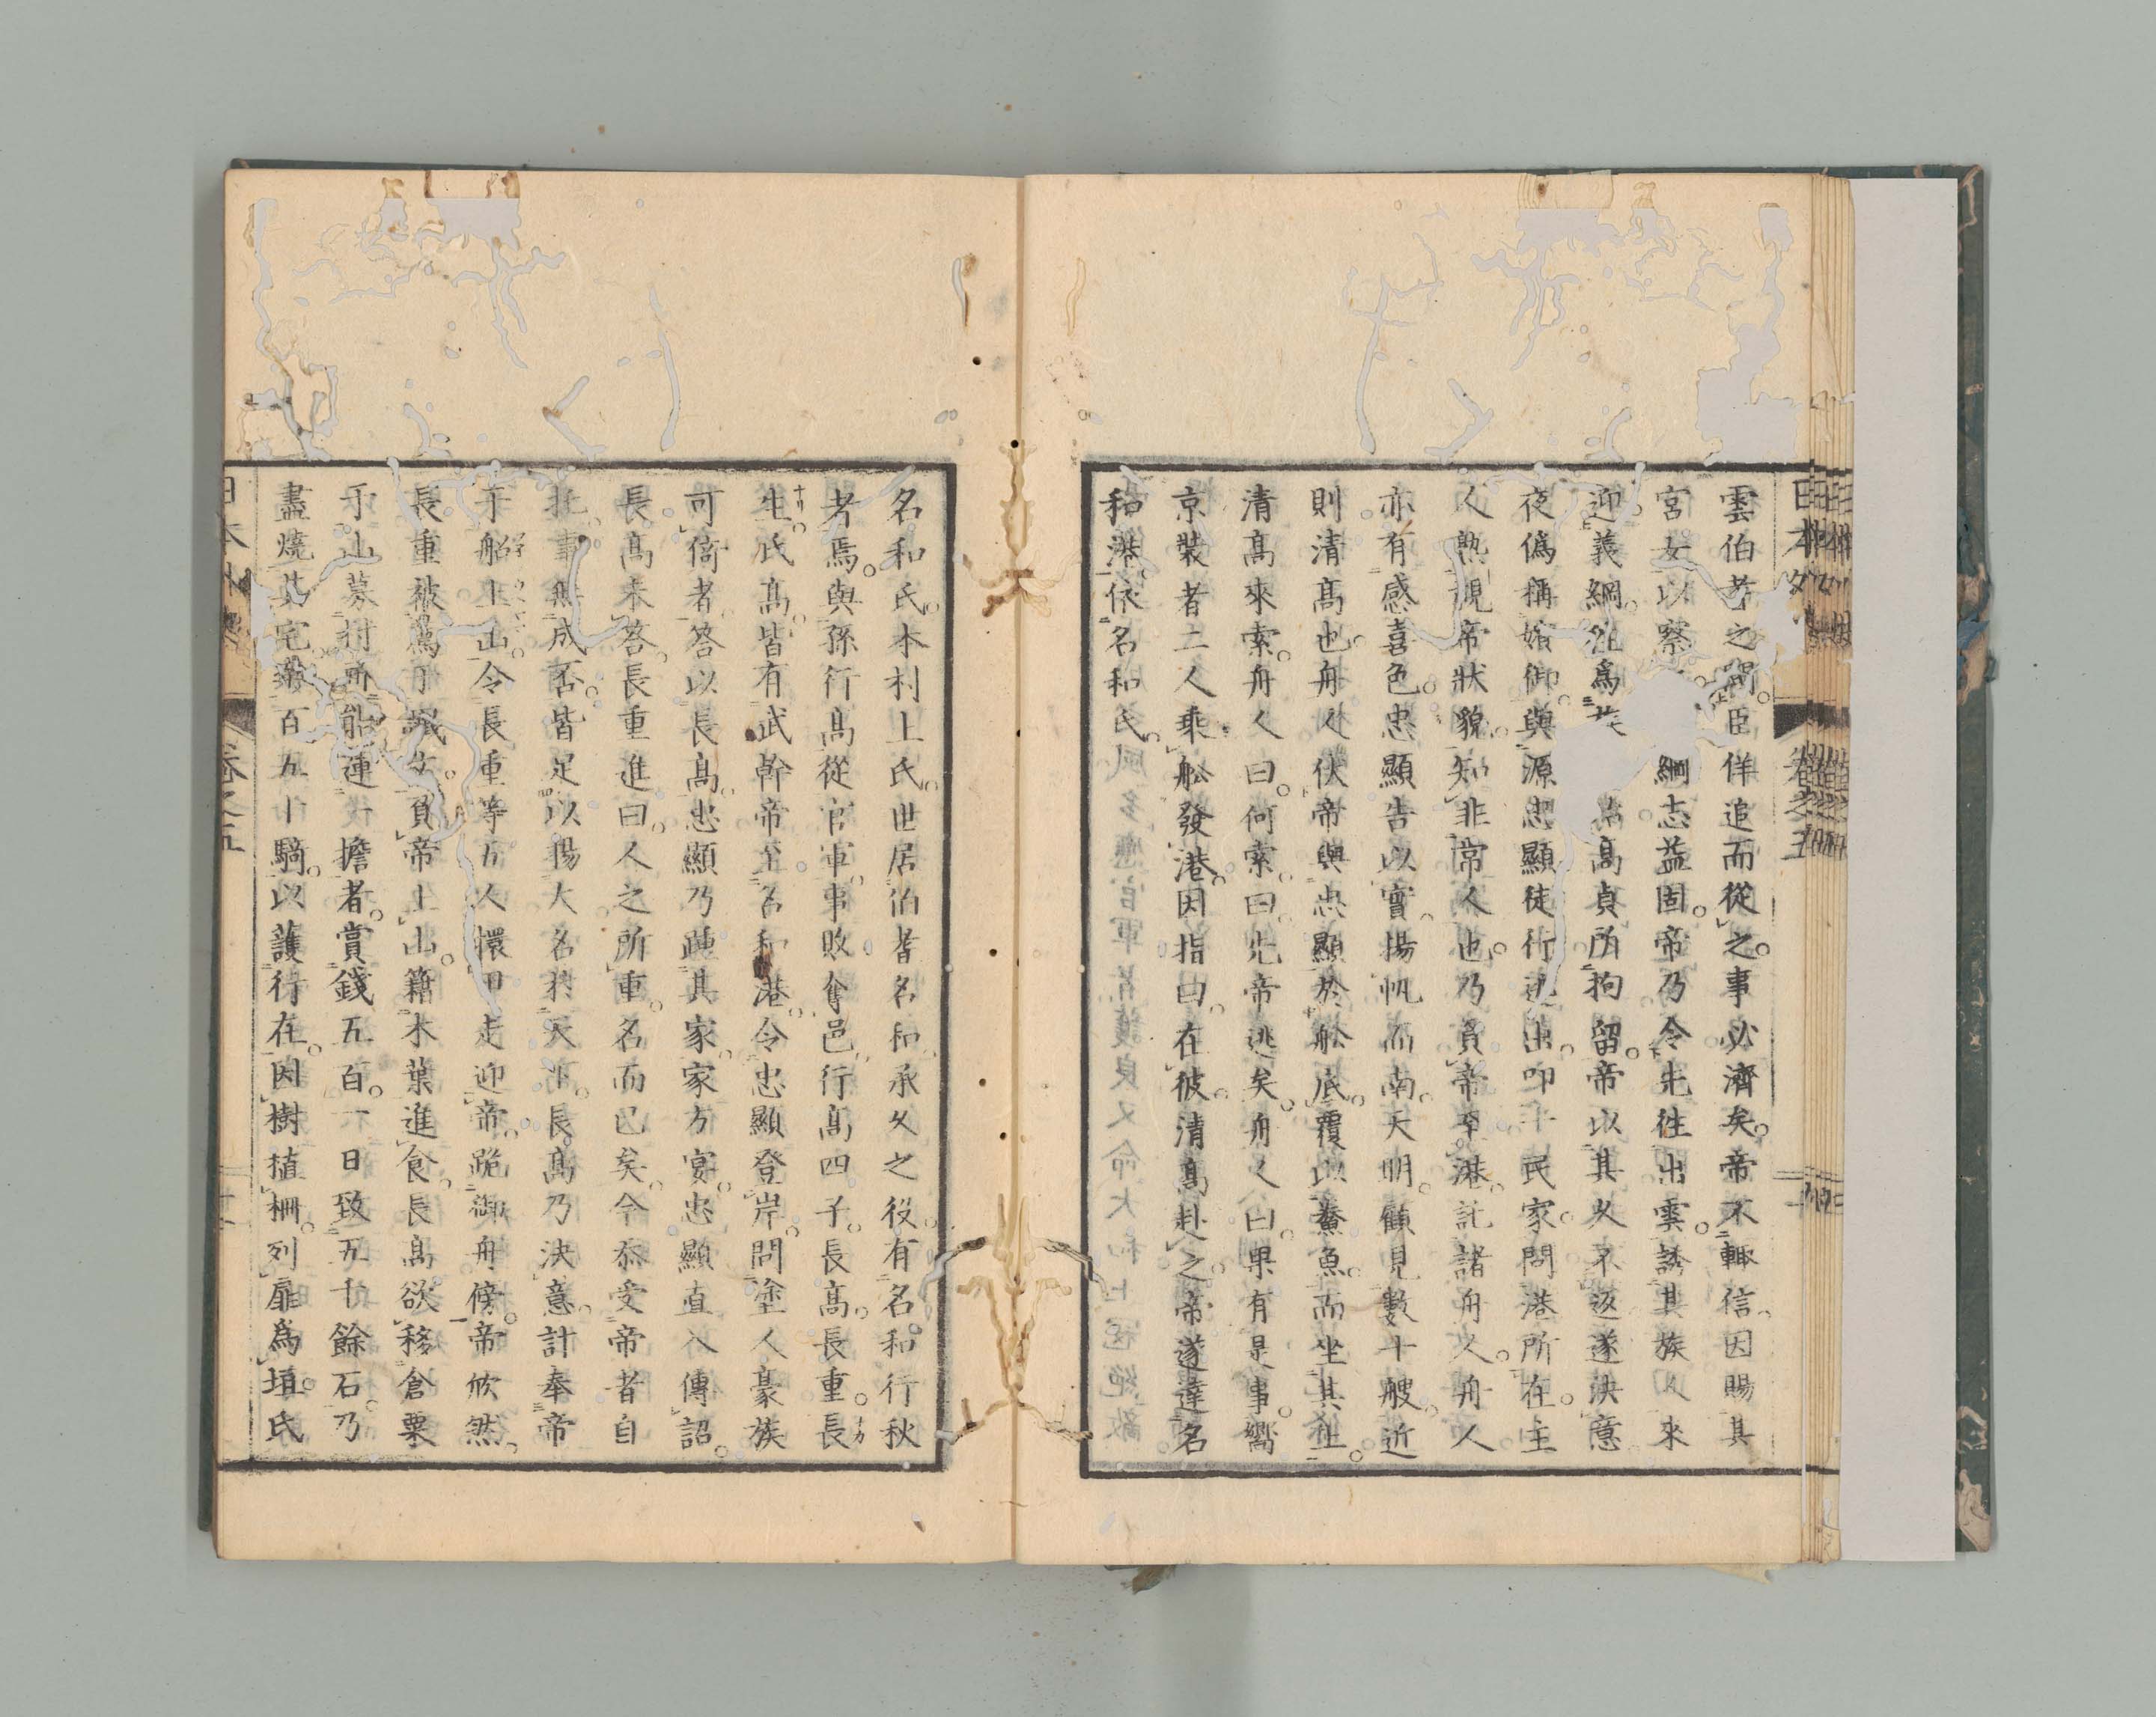 雲伯耆之間。臣佯追而從之。事必濟矣。帝不輙信。因賜其
宮女以察 綱志益固。帝乃令先往出雲。誘其族人來
迎。義綱 爲 高貞所拘留。帝以其久不返。遂決意
夜僞稱嬪御。與源忠顯徒行 出。叩 民家。問港所在。主
人熟視帝狀貌。知非常人也。乃負帝至港。託諸舟人。舟人
亦有感喜色。忠顯告以實。揚帆而南。天明。顧見數十艘近
則清高也。舟人伏帝與忠顯於舩底。覆以鯗魚。而坐其上。
清高來索。舟人曰。何索。曰。先帝逃矣。舟人曰。果有是事。嚮
京裝者二人乘舩發港。因指曰。在彼。清高赴之。帝遂達名
和港。依名和氏。
名和氏。本村上氏。世居伯耆名和。承久之役。有名和行秋
者焉。與孫行高從官軍。事敗奪邑。行高四子。長高。長重。長
生。氏高。皆有武幹。帝至名和港。令忠顯登岸。問塗人豪族
可倚者。答以長高。忠顯乃踵其家。家方宴。忠顯直入傳詔。
長高未答。長重進曰。人之所重。名而已矣。今忝受帝者自
託。事無成否。皆足以揚大名於天下。長高乃決意。計奉帝
于船上山。令長重等五人擐甲走迎帝。跪御舟傍。帝欣然。
長重被薦 負帝上山。籍木葉進食。長高欲移倉粟
于山。募村 能運一 擔者。賞錢五百。一日致五十餘石。乃
盡燒其宅。 百五十騎。以護行在。因樹植柵。列扉爲垣。氏
日本外史
卷之五